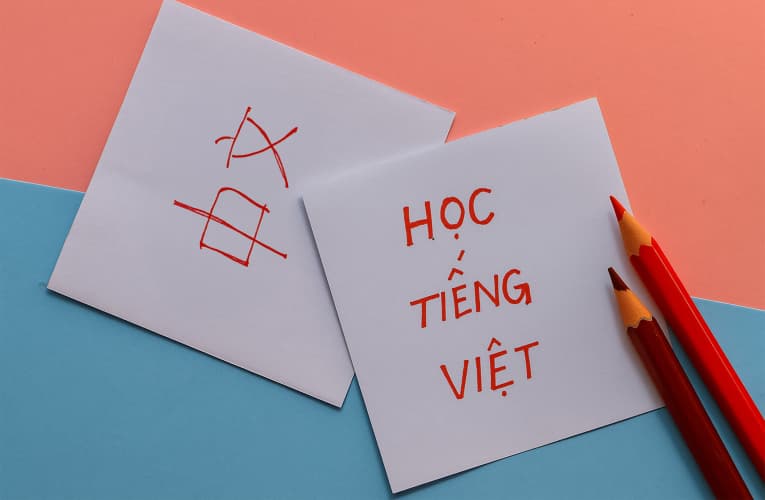 中文
HỌC
TIẾNG
VIỆT